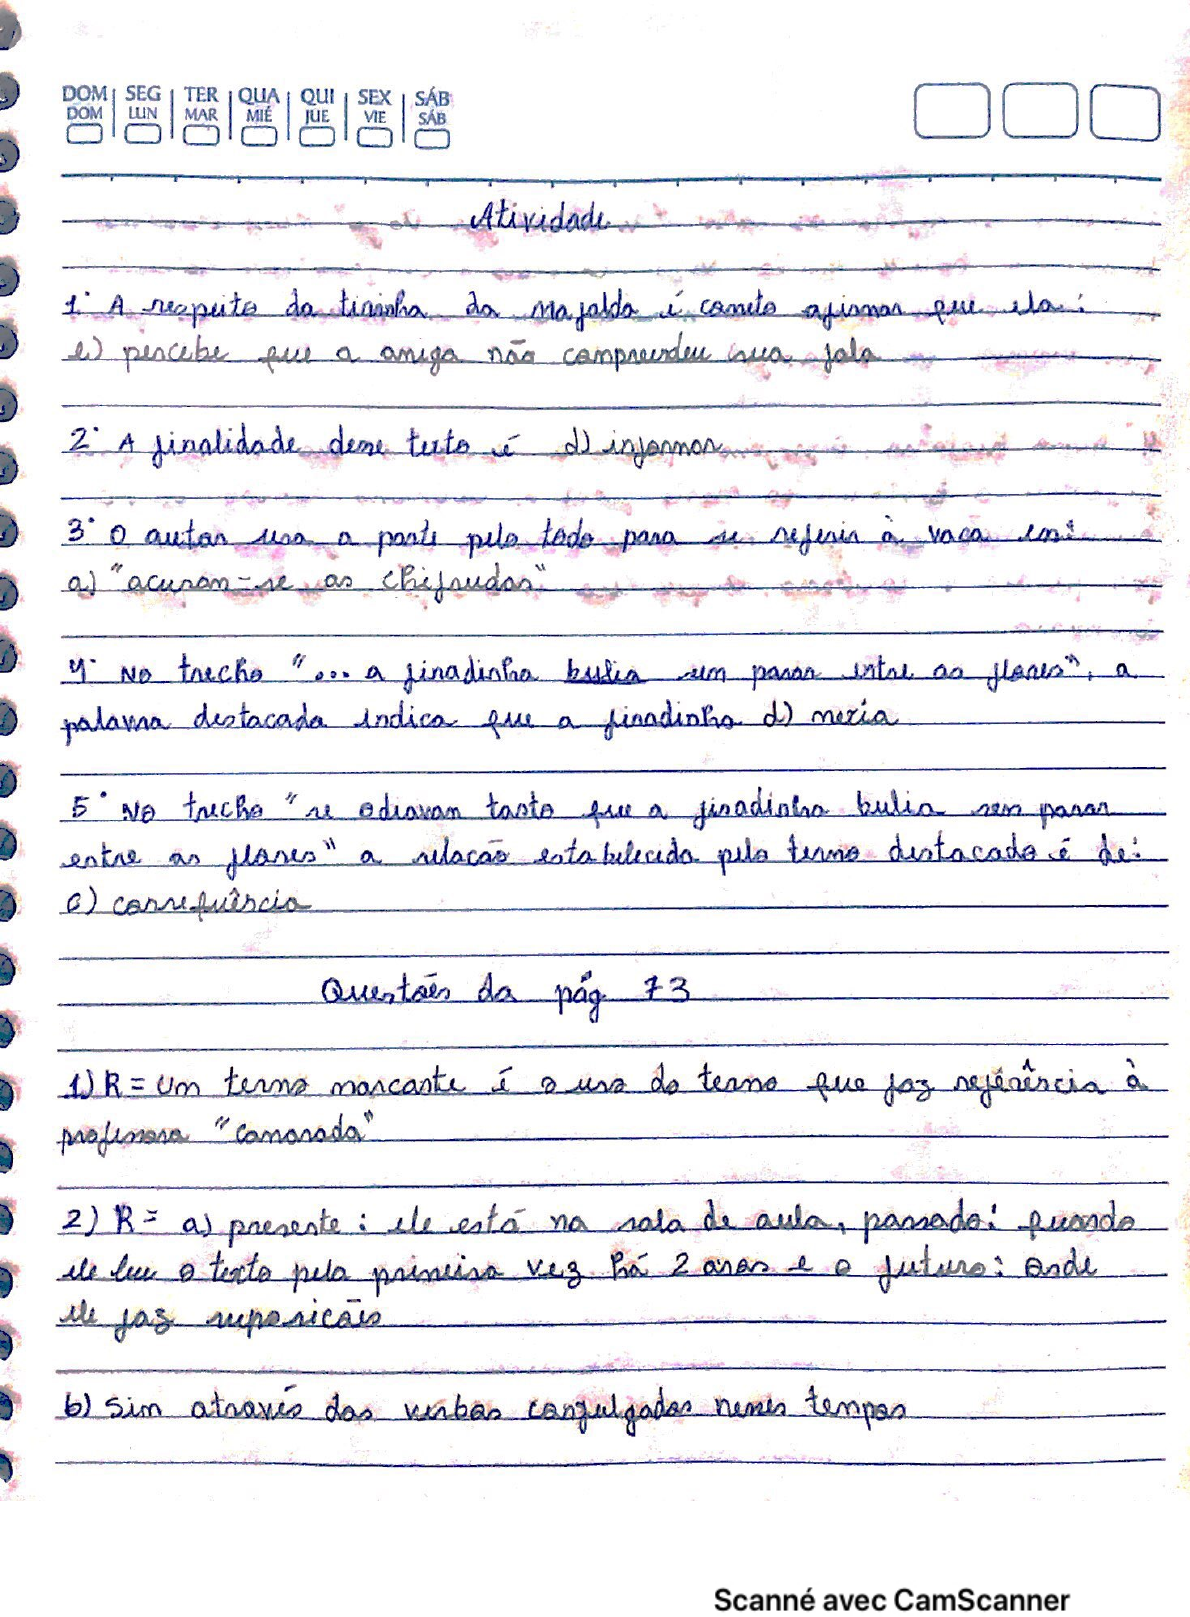 DOM SEG TER QUA QUI SEX SÁB
DOM LUN MAR MIÉ JUE VIE SÁB
Atividade
1° A respeito da tirinha da mafalda é correto afirmar que ela:
e) percebe que a amiga não compreendeu sua fala
2° A finalidade desse texto é d) informar
3° O autor usa a parte pelo todo para se referir à vaca em:
a) "acusam-se as chifrudas"
4° No trecho "... a finadinha bulia sem parar entre as flores", a
palavra destacada indica que a finadinha d) mexia
5° No trecho "se odiavam tanto que a finadinha bulia sem parar
entre as flores" a relacão estabelecida pelo termo destacado é de:
c) consequência
Questões da pág 73
1) R = Um termo marcante é o uso do termo que faz referência à
professora "camarada"
2) R = a) presente: ele está na sala de aula, passado: quando
ele leu o texto pela primeira vez há 2 anos e o futuro: onde
ele faz suposicões
b) Sim através dos verbos conjulgados nesses tempos
Scanné avec CamScanner